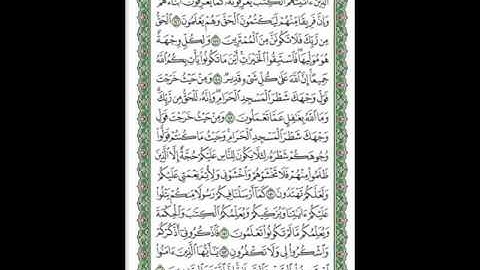 الَّذِينَ ءَاتَيْنَٰهُمُ الْكِتَٰبَ يَعْرِفُونَهُۥ كَمَا يَعْرِفُونَ أَبْنَآءَهُمْ
وَإِنَّ فَرِيقًا مِّنْهُمْ لَيَكْتُمُونَ الْحَقَّ وَهُمْ يَعْلَمُونَ ١٤٦
الْحَقُّ مِن رَّبِّكَ فَلَا تَكُونَنَّ مِنَ الْمُمْتَرِينَ ١٤٧ وَلِكُلٍّ وِجْهَةٌ
هُوَ مُوَلِّيهَا فَاسْتَبِقُوا الْخَيْرَٰتِ أَيْنَ مَا تَكُونُوا يَأْتِ بِكُمُ اللَّهُ
جَمِيعًا إِنَّ اللَّهَ عَلَىٰ كُلِّ شَىْءٍ قَدِيرٌ ١٤٨ وَمِنْ حَيْثُ خَرَجْتَ
فَوَلِّ وَجْهَكَ شَطْرَ الْمَسْجِدِ الْحَرَامِ وَإِنَّهُۥ لَلْحَقُّ مِن رَّبِّكَ
وَمَا اللَّهُ بِغَٰفِلٍ عَمَّا تَعْمَلُونَ ١٤٩ وَمِنْ حَيْثُ خَرَجْتَ فَوَلِّ
وَجْهَكَ شَطْرَ الْمَسْجِدِ الْحَرَامِ وَحَيْثُ مَا كُنتُمْ فَوَلُّوا
وُجُوهَكُمْ شَطْرَهُۥ لِئَلَّا يَكُونَ لِلنَّاسِ عَلَيْكُمْ حُجَّةٌ إِلَّا الَّذِينَ
ظَلَمُوا مِنْهُمْ فَلَا تَخْشَوْهُمْ وَاخْشَوْنِى وَلِأُتِمَّ نِعْمَتِى عَلَيْكُمْ
وَلَعَلَّكُمْ تَهْتَدُونَ ١٥٠ كَمَآ أَرْسَلْنَا فِيكُمْ رَسُولًا مِّنكُمْ يَتْلُوا
عَلَيْكُمْ ءَايَٰتِنَا وَيُزَكِّيكُمْ وَيُعَلِّمُكُمُ الْكِتَٰبَ وَالْحِكْمَةَ
وَيُعَلِّمُكُم مَّا لَمْ تَكُونُوا تَعْلَمُونَ ١٥١ فَاذْكُرُونِىٓ أَذْكُرْكُمْ
وَاشْكُرُوا لِى وَلَا تَكْفُرُونِ ١٥٢ يَٰٓأَيُّهَا الَّذِينَ ءَامَنُوا